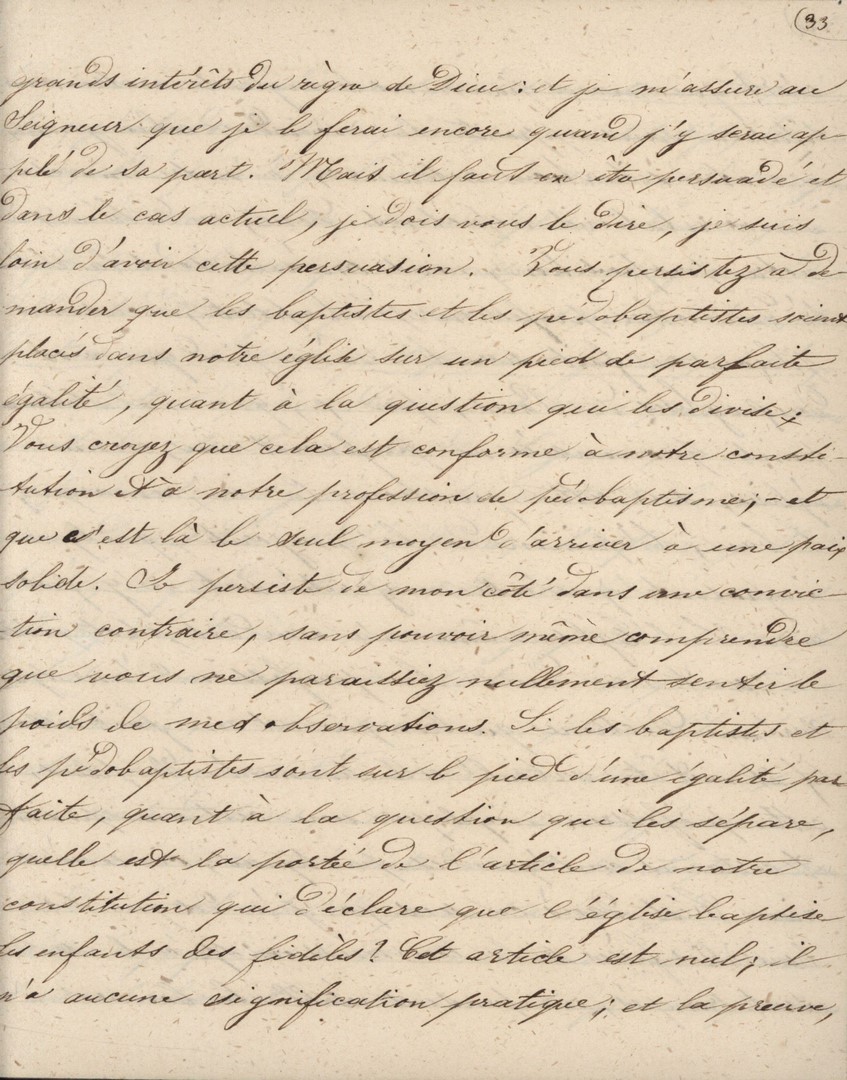 33
grands intérêts du règne de Dieu: et je m'assure au
Seigneur que je le ferai encore quand j'y serai ap-
pelé de sa part. Mais il faut en être persuadé et
dans le cas actuel, je dois vous le dire, je suis
loin d'avoir cette persuasion. Vous persistez à de-
mander que les baptistes et les pédobaptistes soient
placés dans notre église sur un pied de parfaite
égalité, quant à la question qui les divise;
Vous croyez que cela est conforme à notre consti-
tution et a notre profession de pédobaptisme; - et
que c'est là le seul moyen d'arriver à une paix
solide. Je persiste de mon côté dans une convic-
tion contraire, sans pouvoir même comprendre
que vous ne paraissiez nullement sentir le
poids de mes observations. Si les baptistes et
les pédobaptistes sont sur le pied d'une égalité par-
faite, quant à la question qui les sépare,
quelle est la portée de l'article de notre
constitution qui déclare que l'église baptise
les enfants des fidèles? Cet article est nul; il
n'a aucune signification pratique; et la preuve,